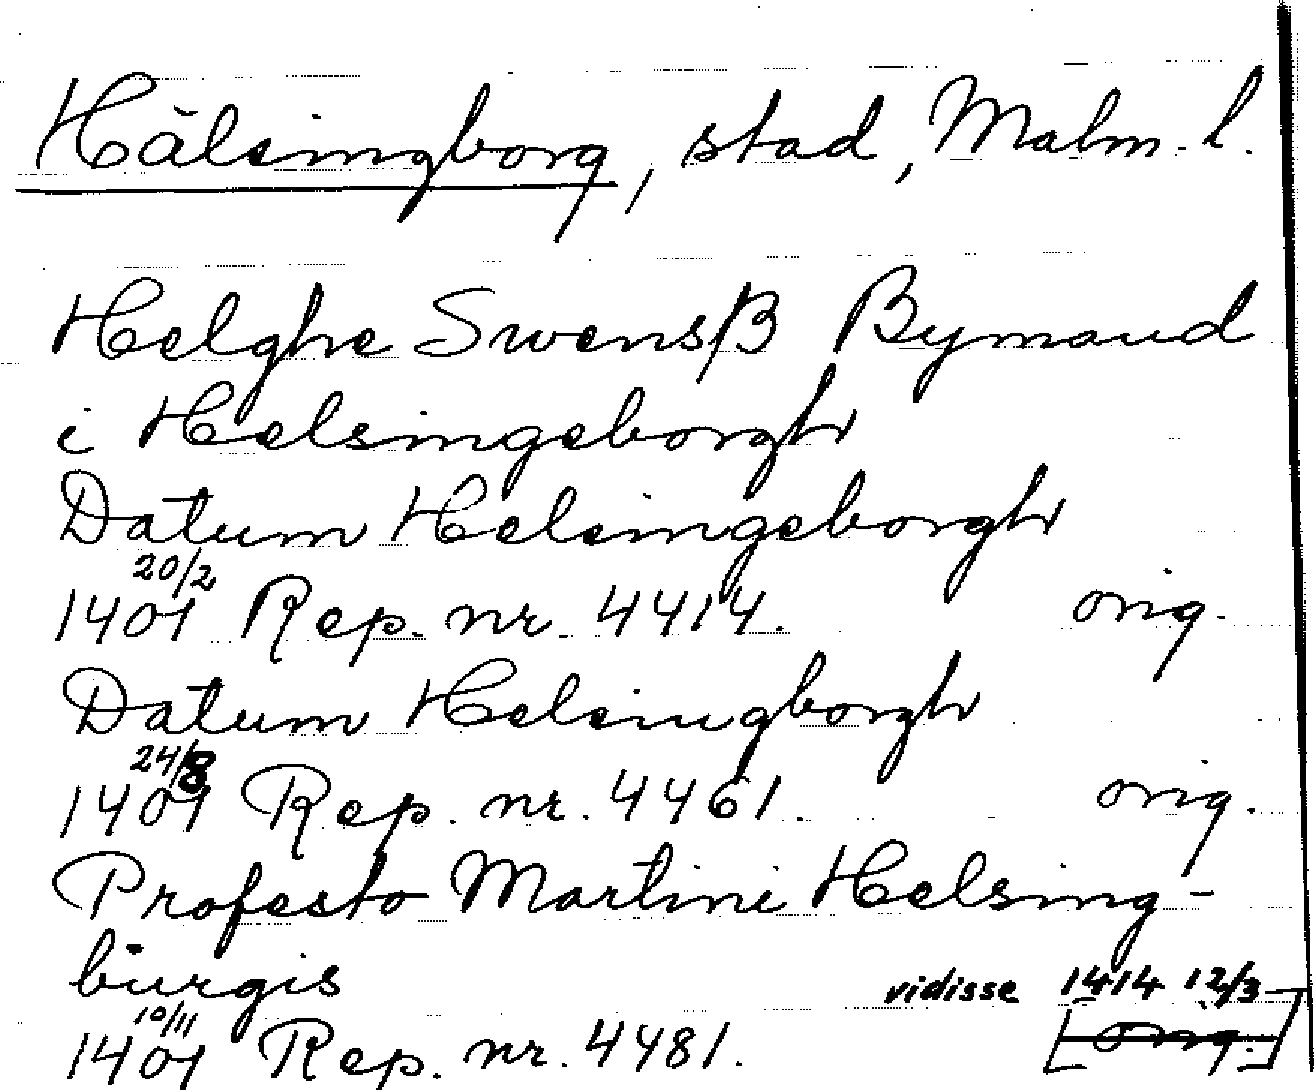 Hälsingborg, stad, Malm. l.
Helghe Swensß Bymand
i Helsingeborgh
Datum Helsingeborgh
20/2
1401 Rep. nr. 4414. orig.
Datum Helsingborgh
24/8
1401 Rep. nr. 4461. orig.
Profesto Martini Helsing-
burgis
vidisse 1414 12/3
10/11
1401 Rep. nr. 4481. [orig.]